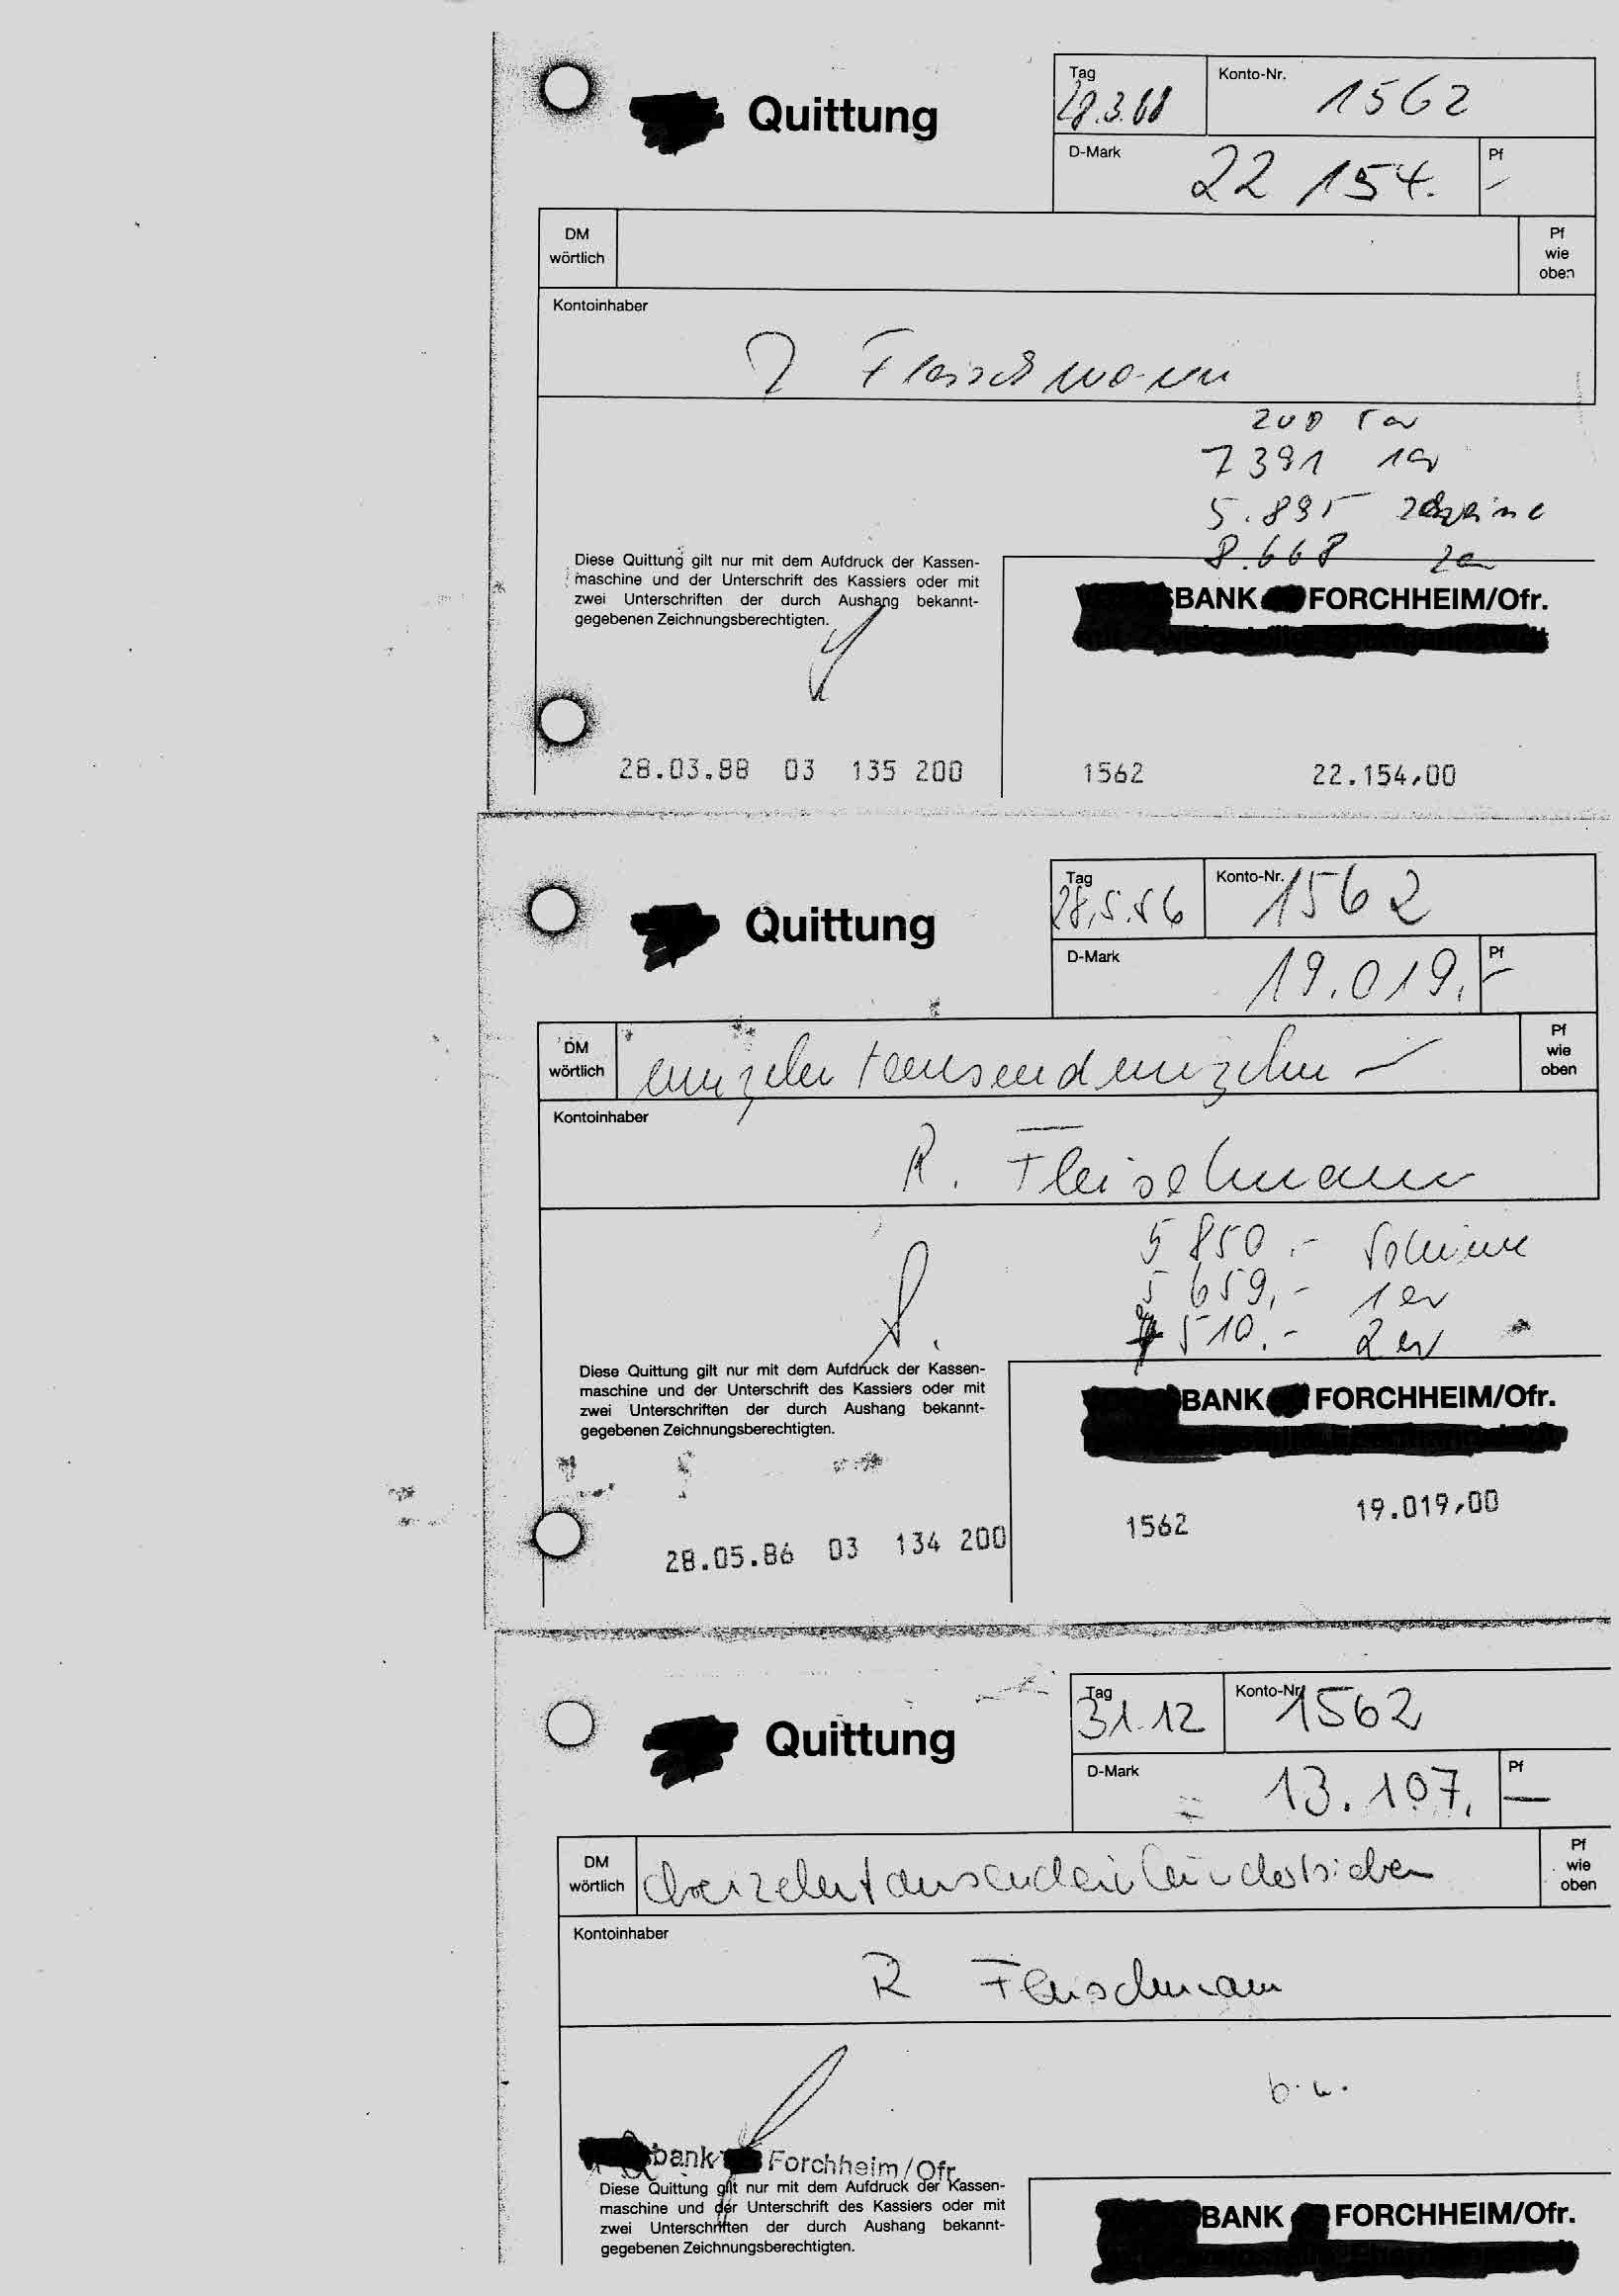 Quittung
Tag
28.3.88
Konto-Nr.
1562
D-Mark
22 154.
Pf
–
DM
wörtlich
Pf
wie
oben
Kontoinhaber
Fleischmann
200 5er
7391 1er
5.895 Scheine
8.668 2er
Diese Quittung gilt nur mit dem Aufdruck der Kassen-
maschine und der Unterschrift des Kassiers oder mit
zwei Unterschriften der durch Aushang bekannt-
gegebenen Zeichnungsberechtigten.
BANK FORCHHEIM/Ofr.
28.03.88 03 135 200 1562 22.154,00
Quittung
Tag
28.5.86
Konto-Nr.
1562
D-Mark
19.019,
Pf
–
DM
wörtlich
neunzehntausendneunzehn –
Pf
wie
oben
Kontoinhaber
R. Fleischmann
5 850.- Scheine
5 659,- 1er
7 510.- 2er
Diese Quittung gilt nur mit dem Aufdruck der Kassen-
maschine und der Unterschrift des Kassiers oder mit
zwei Unterschriften der durch Aushang bekannt-
gegebenen Zeichnungsberechtigten.
BANK FORCHHEIM/Ofr.
28.05.86 03 134 200 1562 19.019,00
Quittung
Tag
31.12
Konto-Nr.
1562
D-Mark
13.107,
Pf
—
DM
wörtlich
dreizehntausendeinhundertsieben
Pf
wie
oben
Kontoinhaber
R Fleischmann
bank Forchheim/Ofr.
Diese Quittung gilt nur mit dem Aufdruck der Kassen-
maschine und der Unterschrift des Kassiers oder mit
zwei Unterschriften der durch Aushang bekannt-
gegebenen Zeichnungsberechtigten.
BANK FORCHHEIM/Ofr.